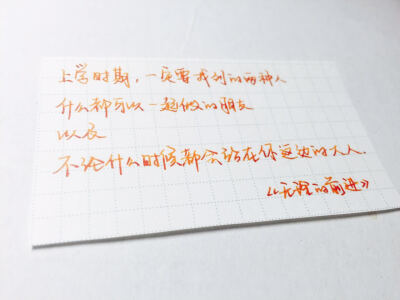 上学时期,一定要找到的两种人
什么都可以一起做的朋友
以及
不论什么时候都会站在你这边的大人.
《无理的前进》